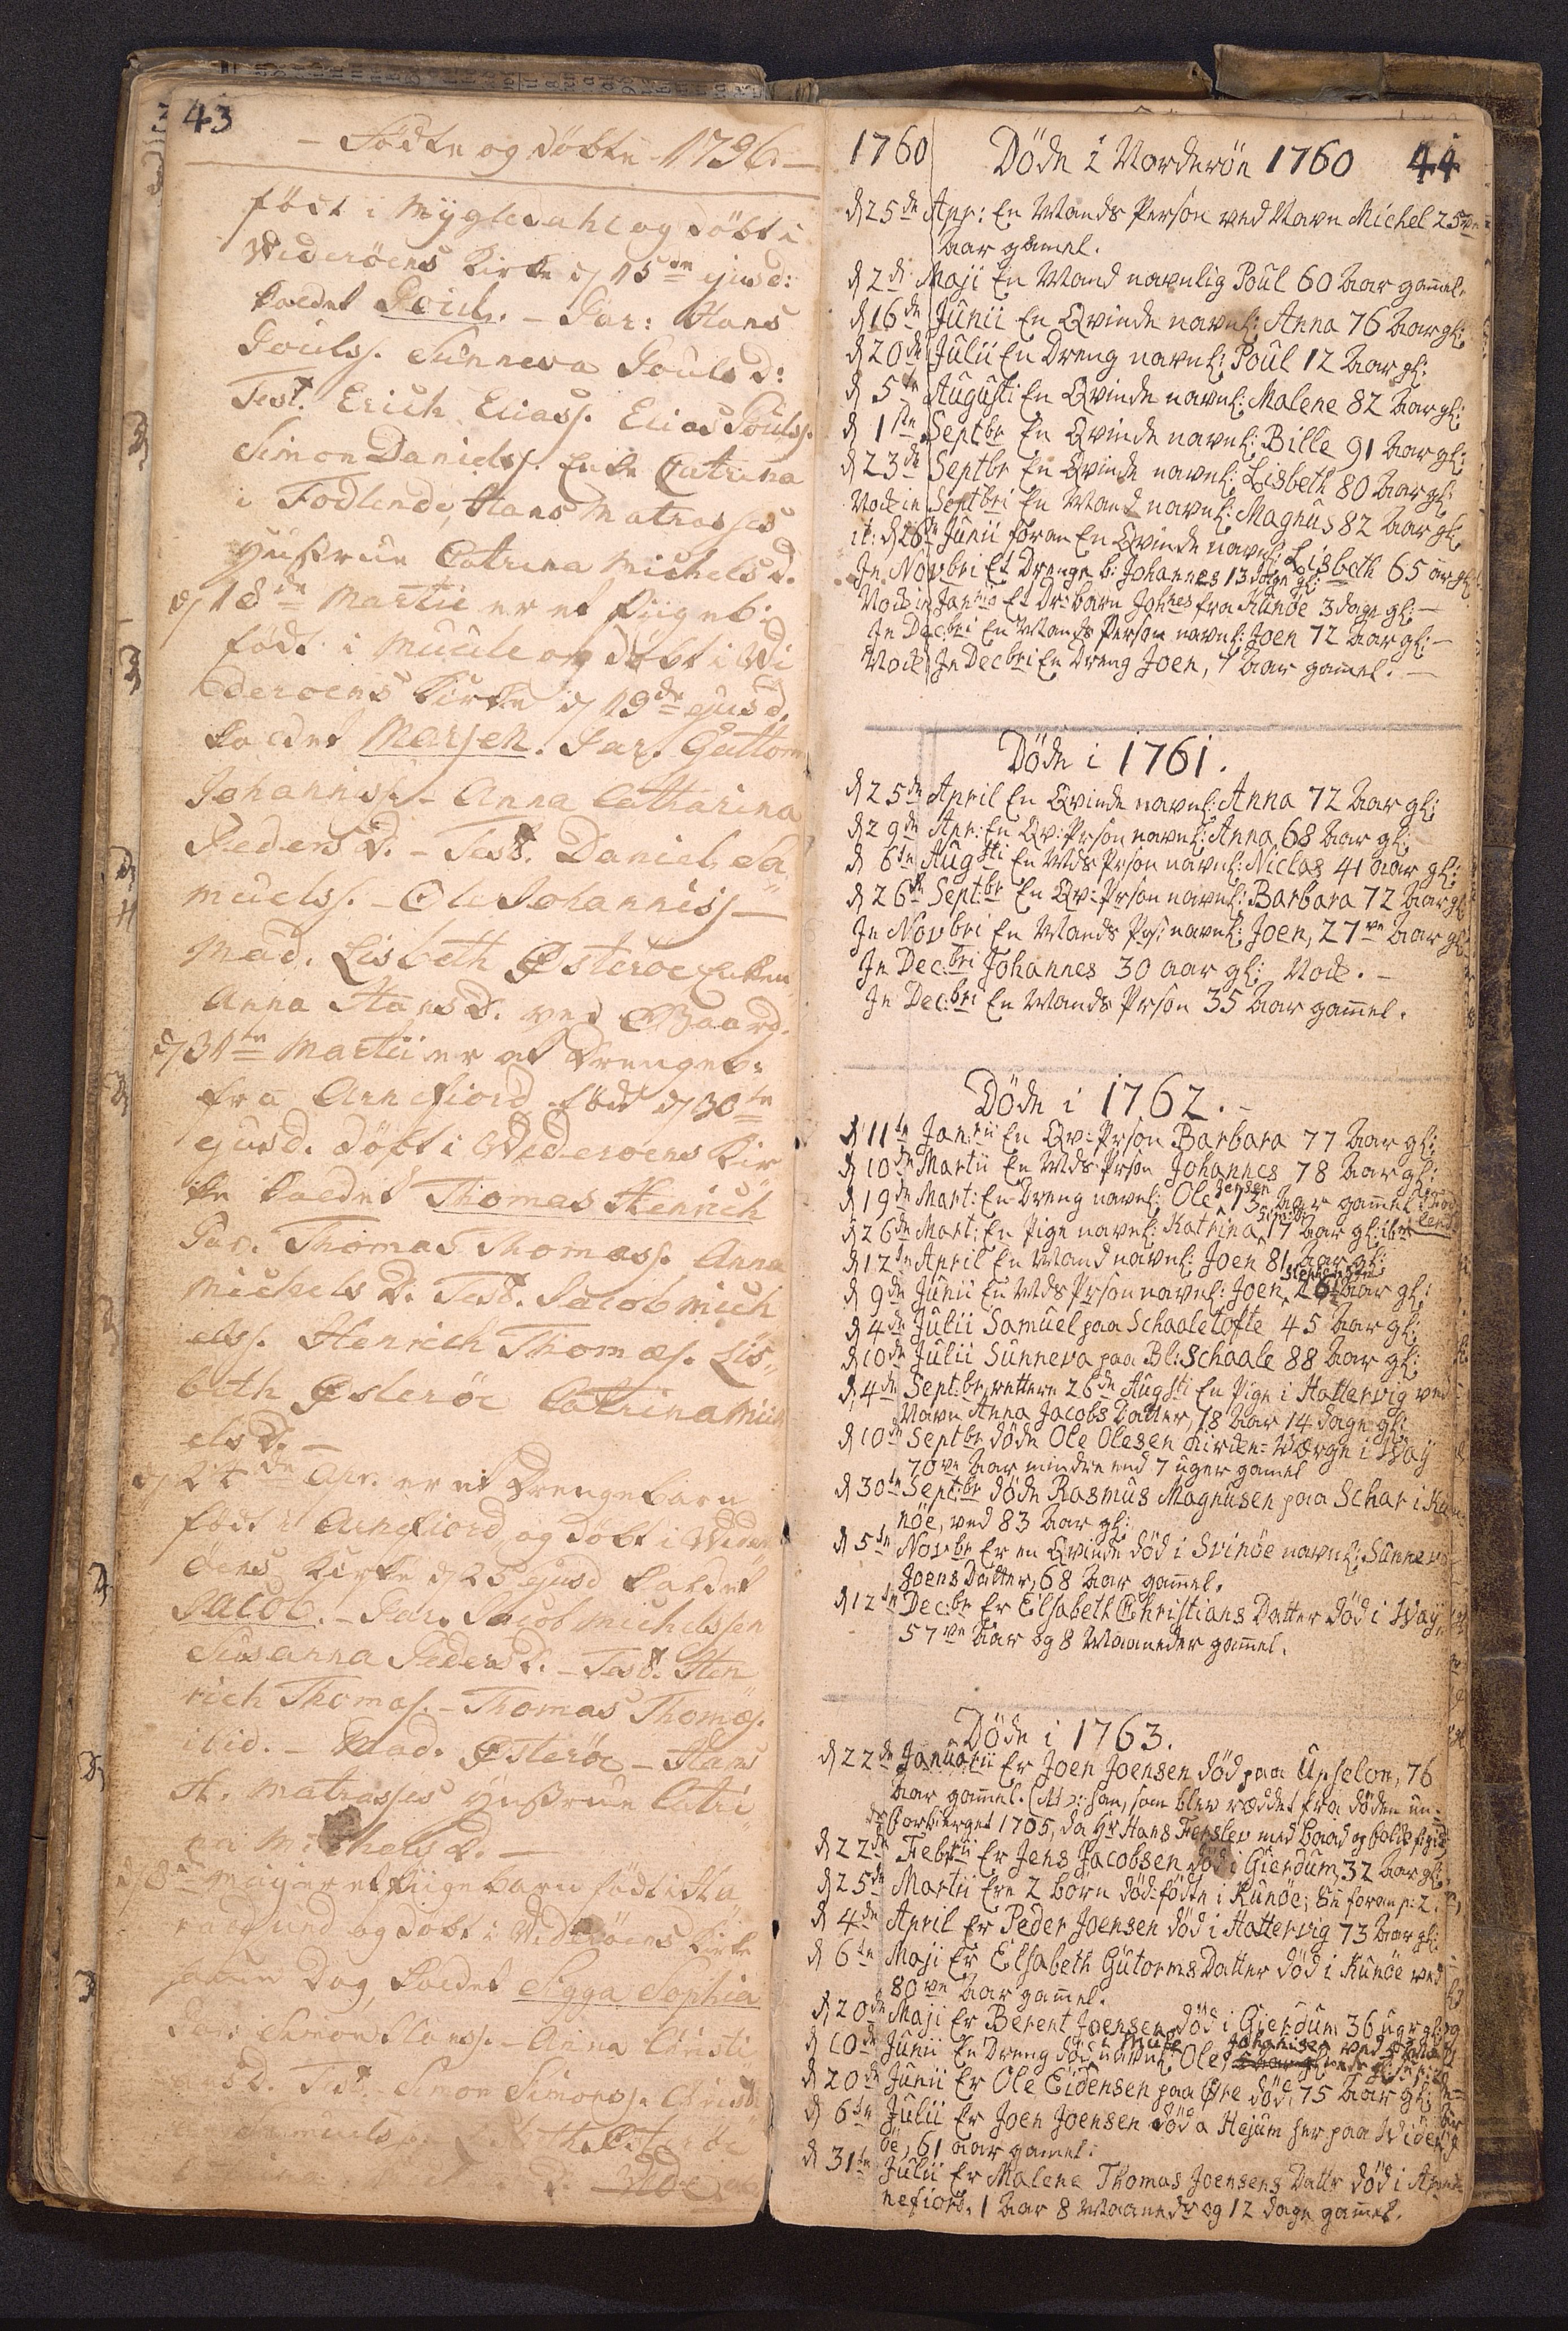 43
- Födte og döbte 1796. -
födt i Mygledahl og döbt i
Widerøens Kirke d 15de ejusd:
kaldet Poul. - Par: Hans
Pouls. Sunneva Poulsd:
Test. Erich Eliass. Elias Pouls.
Simon Daniels. Enke Catrina
i Todlende, Hans Matrasses
Hustrue Catrina Michelsd.
d 18de Martii er et Pigeb:
födt i Muule og döbt i Wi
deroens Kirke d 19de ejusd.
kaldet Marsen. Par. Guttorm
Johanniss. - Anna Catharina
Pedersd. - Test. Daniel Sa,,
muels. - Ole Johanniss -
Mad. Lisbeth Østerøe Enken
Anna Hansd. ved Gaard.
d 31te Martii er et Drengeb:
fra Arnefiord födt d 30te
ejusd. döbt i Widerøens Kir
ke kaldet Thomas Henrich
Par. Thomas Thomass. Anna
Michelsd. Test. Jacob Mich
els. Henrich Thomæs. Lis,,
beth Østerøe Catrina Mich
elsd. -
d 24de Apr. er et Drengebarn
födt i Arnefiord og döbt i Wider
öens Kirke d 25 ejusd kaldet
Jacob. - Par. Jacob Michelssen
Susanna Pedersd. - Test. Hen
rich Thomæs. - Thomas Thomæs.
ibid. - Mad. Østerøe - Hans
H. Matrasses Hustrue Catri
na Michelsd. -
d 8de Maij er et Pigebarn födt i Ha
rald sund og döbt i Widerøens Kirke
samme Dag, kaldet Sigga Sophia
Par. Simon Hans. - Anna Christi
ansd. Test. Simon Simons. Christi

1760 Döde i Norderöe 1760 44
d 25de Apr: En Mands Person ved Navn Michel 25ve
Aar gamel.
d 2de Maji En Mand navnlig Poul 60 Aar gamel.
d 16de Junii En Qvinde navnl: Anna 76 Aar gl:
d 20de Julii En Dreng navnl: Poul 12 Aar gl:
d 5te Augusti En Qvinde navnl: Malene 82 Aar gl:
d 1ste Septbr En Qvinde navnl: Bille 91 Aar gl:
d 23de Septbr En Qvinde navnl: Lisbeth 80 Aar gl:
Nock in Septbri En Mand navnl: Magnus 82 Aar gl:
it: d 26de Junii foran En Qvinde navnl: Lisbeth 65 ar gl:
In Novbri Et Drenge b: Johannes 13 dage gl:
Nock in Janrio Et Dr: barn Johnes fra Kunöe 3 dage gl: -
In Decbri En Mands Person navnl: Joen 72 Aar gl: -
Nock In Decbri En Dreng Joen, 7 Aar gamel. -
Döde i 1761.
d 25de April En Qvinde navnl: Anna 72 Aar gl:
d 29de Apr: En Qv: Prson navnl: Anna 68 Aar gl:
d 6te Augsti En Mds Prson navnl: Niclas 41 aar gl:
d 26de Septbr En Qv: Prson navnl: Barbara 72 Aar gl:
In Novbri En Mands Prs: navnl: Joen, 27ve Aar gl:
In Dec:bri Johannes 30 aar gl: Nock. -
In Dec:bri En Mands Prson 35 Aar gamel.
Döde i 1762. -
d 11te Jan:rii En Qv: Prson Barbara 77 Aar gl:
d 10de Martii En Mds Prson Johannes 78 Aar gl:
d 19de Mart: En Dreng navnl: Ole Jensen 13 Aar gamel
d 26de Mart: En Pige navnl: Katrina 17 Aar gl:
d 12te April En Mand navnl: Joen 81 Aar gl:
d 9de Junii En Mds Prson navnl: Joen 26 Aar gl:
d 4de Julii Samuel paa Schaaletofte 45 Aar gl:
d 10de Julii Sunneva paa Bl: Schaale 88 Aar gl:
d 4de Sept:br, rettere 26de Augsti En Pige i Hattervig ved
Navn Anna Jacobs Datter, 18 Aar 14 dage gl:
d 10de Septbr döde Ole Olesen Kircke-Værge i Waaÿ
70ve Aar mindre end 7 uger gamel
d 30te Sept:br döde Rasmus Magnusen paa Schar i Ku-
nöe, ved 83 Aar gl:
d 5te Novbr Er en Qvinde död i Svinöe navnl: Sunneva
Joens Datter, 68 Aar gamel.
d 12te Dec:br Er Elsabeth Christians Datter död i Waaÿ,
57ve Aar og 8 Maaneder gamel.
Döde i 1763.
d 22de Januarii Er Joen Joensen död paa Upselon, 76
Aar gamel. (NB: han, som blev reddet fra döden un-
der Forbierget 1705, da Hr Hans Fenslev med Baad og Folck
d 22de Febrii Er Jens Jacobsen död i Gierdum, 32 Aar gl:
d 25de Martii Ere 2 börn död-födte i Kunöe;
d 4de April Er Peder Joensen död i Hattervig 73 Aar gl:
d 6te Maji Er Elsabeth Gutorms Datter död i Kunöe ved
80ve Aar gamel.
d 20de Maji Er Berent Joensen död i Gierdum 36 uger gl:
d 10de Junii En Dreng död i Mule navnl: Ole Johanisen
d 20de Junii Er Ole Eidensen paa Øre död, 75 Aar gl:
d 6te Julii Er Joen Joensen död a Hejum her paa Wider-
öe, 61 aar gamel.
d 31te Julii Er Malene Thomas Joensens Dattr död i Ar-
nefiord, 1 Aar 8 Maaneder og 12 dage gamel.